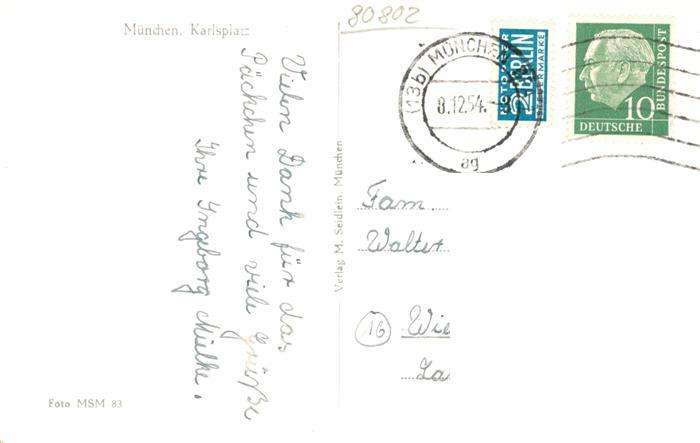 80802
München. Karlsplatz
Vielen Dank für das
Päckchen und viele Grüße
Ihre Ingeborg Mülke.
Foto MSM 83
Verlag M. Seidlein, München
(13b) MÜNCHE
8.12.54.
ag
NOTOPFER
2 BERLIN
STEUERMARKE
10
DEUTSCHE
BUNDESPOST
Fam.
Walter
16 Wie
La